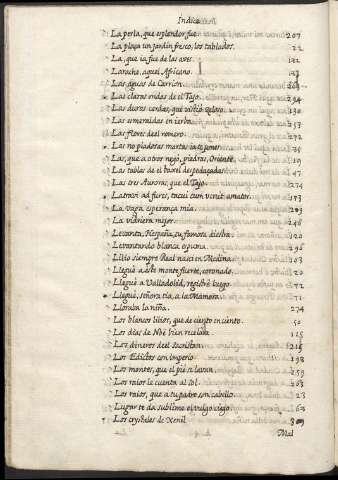 Indice
La perla, que esplendor fue 207
La plaça un jardin fresco, los tablados. 22
La, que ia fue de las aves.
Larache, aquel Africano.
Las aguas de Carrion.
Las claras ondas de el Tajo. 294
Las duras cerdas, que vistio zeloso. 130
Las esmeraldas en ierba. 257
Las flores de el romero. 272
Las no piadosas martas ia te pones 35
Las, que a otros negó, piedras, Oriente 19
Las tablas de el baxel despedaçadas 47
Las tres Auroras, que el Tajo. 274
Latraui ad fures, tacui cum venit amator. 193
La vaga esperança mia. 293
La vidriera mejor. 248
Levanta, Hespaña, tu famosa diestra. 120
Levantando blanca espuma. 295
Lilio siempre Real nasci en Medina. 103
Llegué a este monte fuerte, coronado. 20
Llegué a Valladolid, registré luego. 72
Llegué, señora tia, a la Mamora. 71
Lloraba la niña. 274
Los blancos lilios, que de ciento en ciento. 50
Los dias de Noé bien recelara 125
Los dineros del Sacristan. 215
Los Edictos con imperio 198
Los montes, que el pie se lavan. 259
Los raios le cuenta al Sol. 263
Los raios, que a tu padre son cabello. 23
Lugar te da sublime el vulgo ciego 63
Los crystales de Xenil 309
Mal